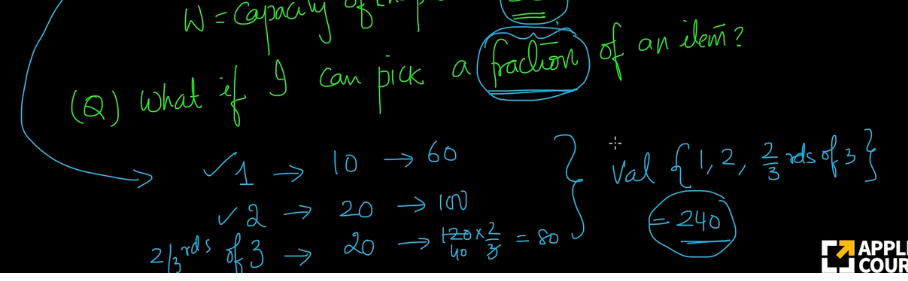 W = Capacity of the
(Q) What if I can pick a fraction of an item?
✓1 → 10 → 60
✓2 → 20 → 100
2/3rds of 3 → 20 → 120 × 2/3 = 80
40
val {1, 2, 2/3 rds of 3}
= 240
APPLI
COUR